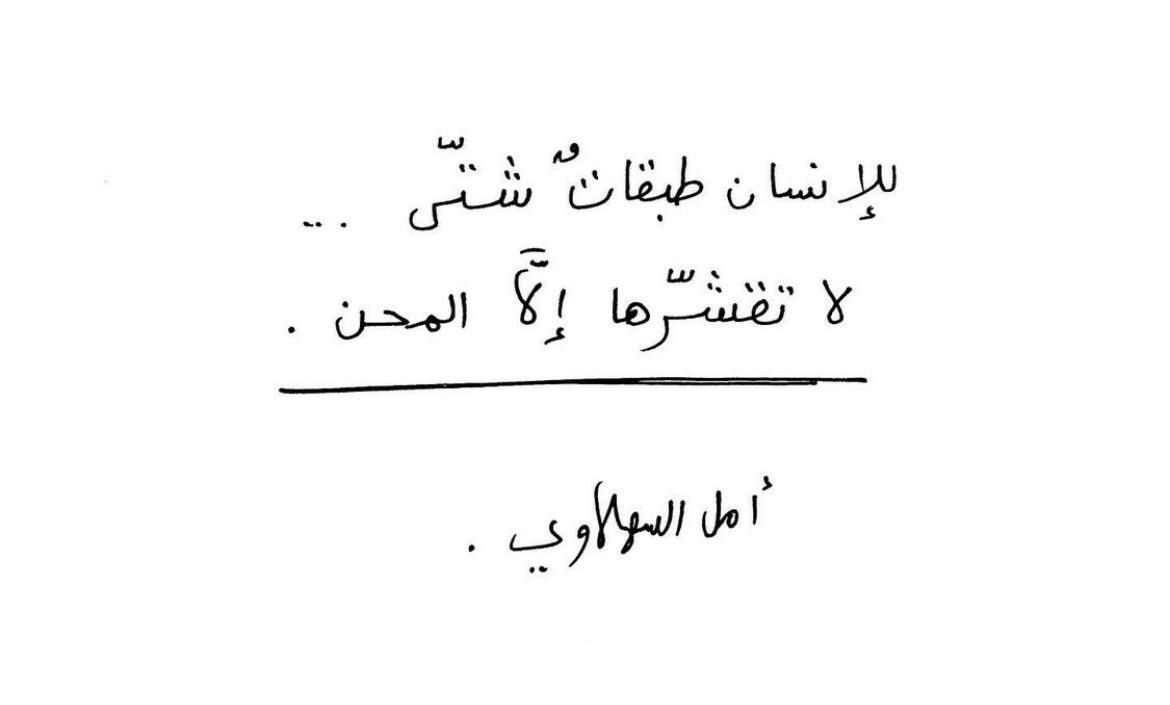 للإنسان طبقاتٌ شتّى ...
لا تقشّرها إلَّا المحن .
أمل السهلاوي .